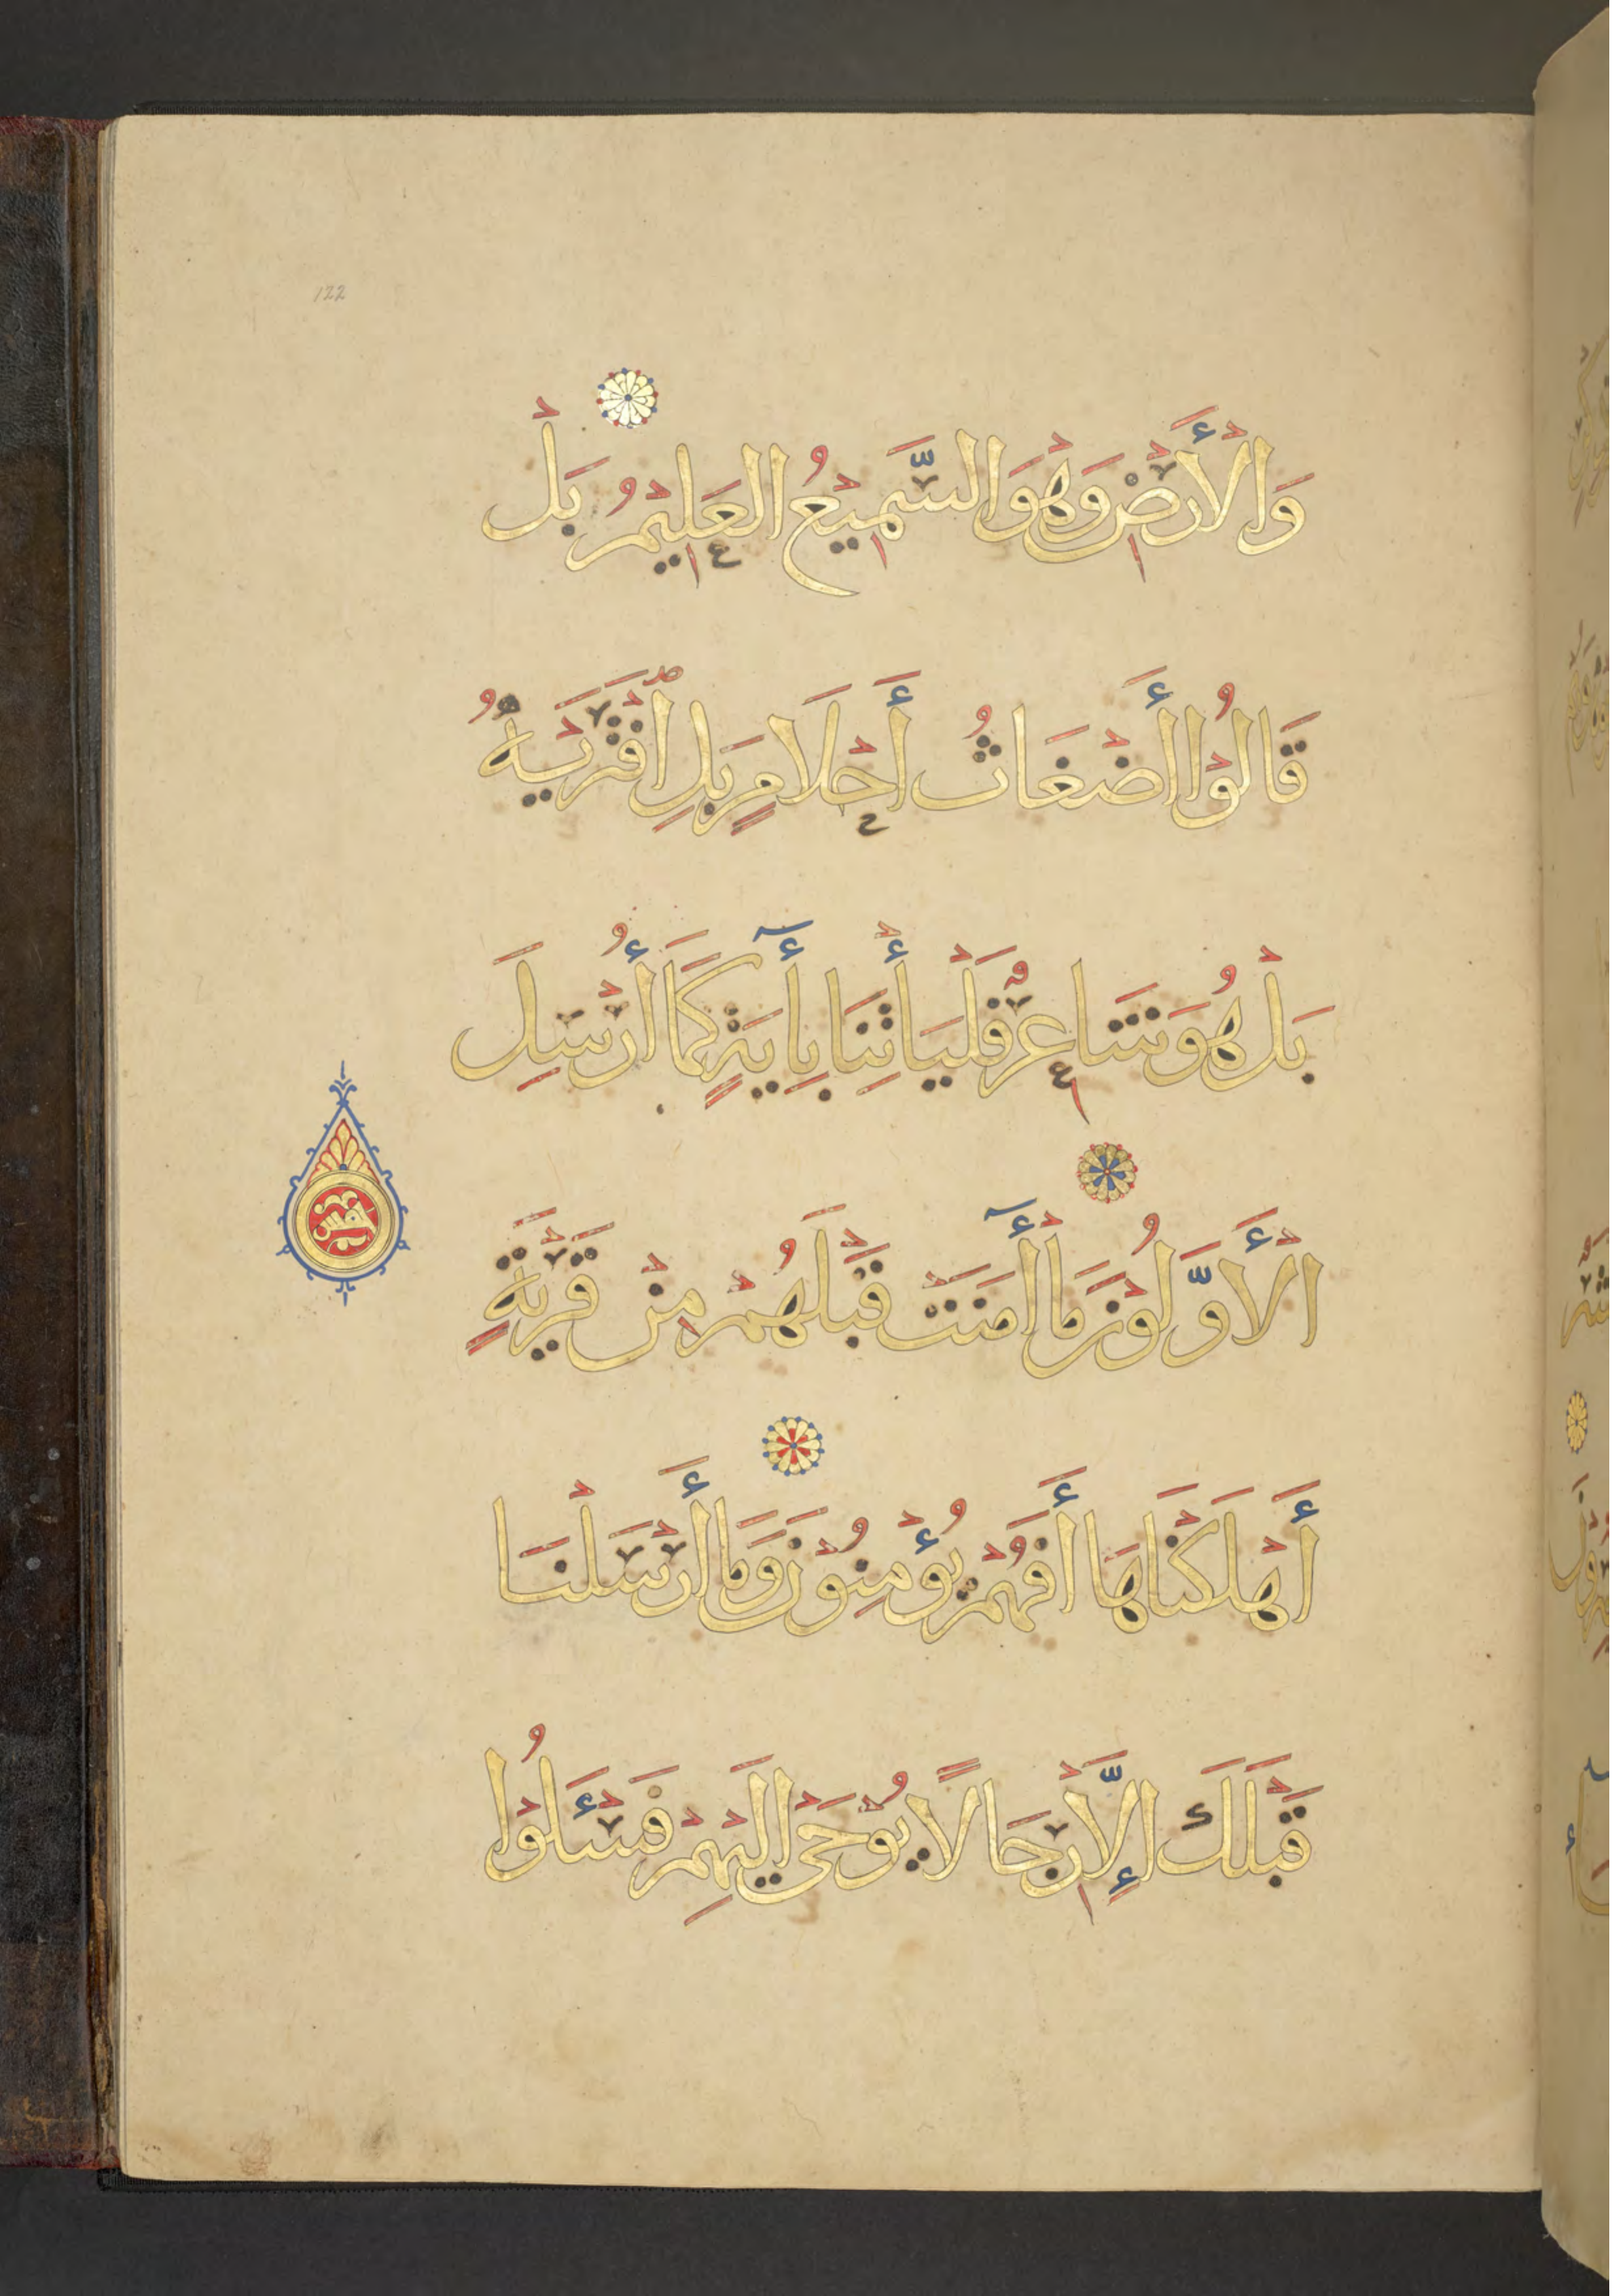 122
وَالْأَرْضِ وَهُوَ السَّمِيْعُ الْعَلِيْمُ بَلْ
قَالُوْا أَضْغَاثُ أَحْلَامٍ بَلِ افْتَرَيٰهُ
بَلْ هُوَ شَاعِرٌ فَلْيَأْتِنَا بِأٓيَةٍ كَمَا أُرْسِلَ
الْأَوَّلُوْنَ مَا أٓمَنَتْ قَبْلَهُمْ مِنْ قَرْيَةٍ
أَهْلَكْنَاهَا أَفَهُمْ يُؤْمِنُوْنَ وَمَا أَرْسَلْنَا
قَبْلَكَ إِلَّا رِجَالًا يُوْحَى إِلَيْهِمْ فَسْـَٔلُوْا